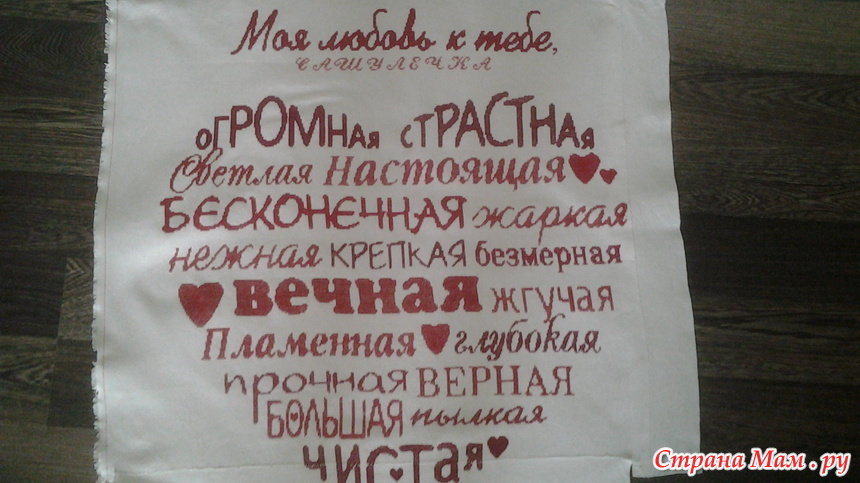 Моя любовь к тебе,
САШУЛЕЧКА
ОГРОМНАЯ СТРАСТНАЯ
Светлая Настоящая
БЕСКОНЕЧНАЯ жаркая
нежная КРЕПКАЯ безмерная
вечная жгучая
Пламенная глубокая
прочная ВЕРНАЯ
БОЛЬШАЯ пылкая
ЧИСТАЯ
Страна Мам.ру